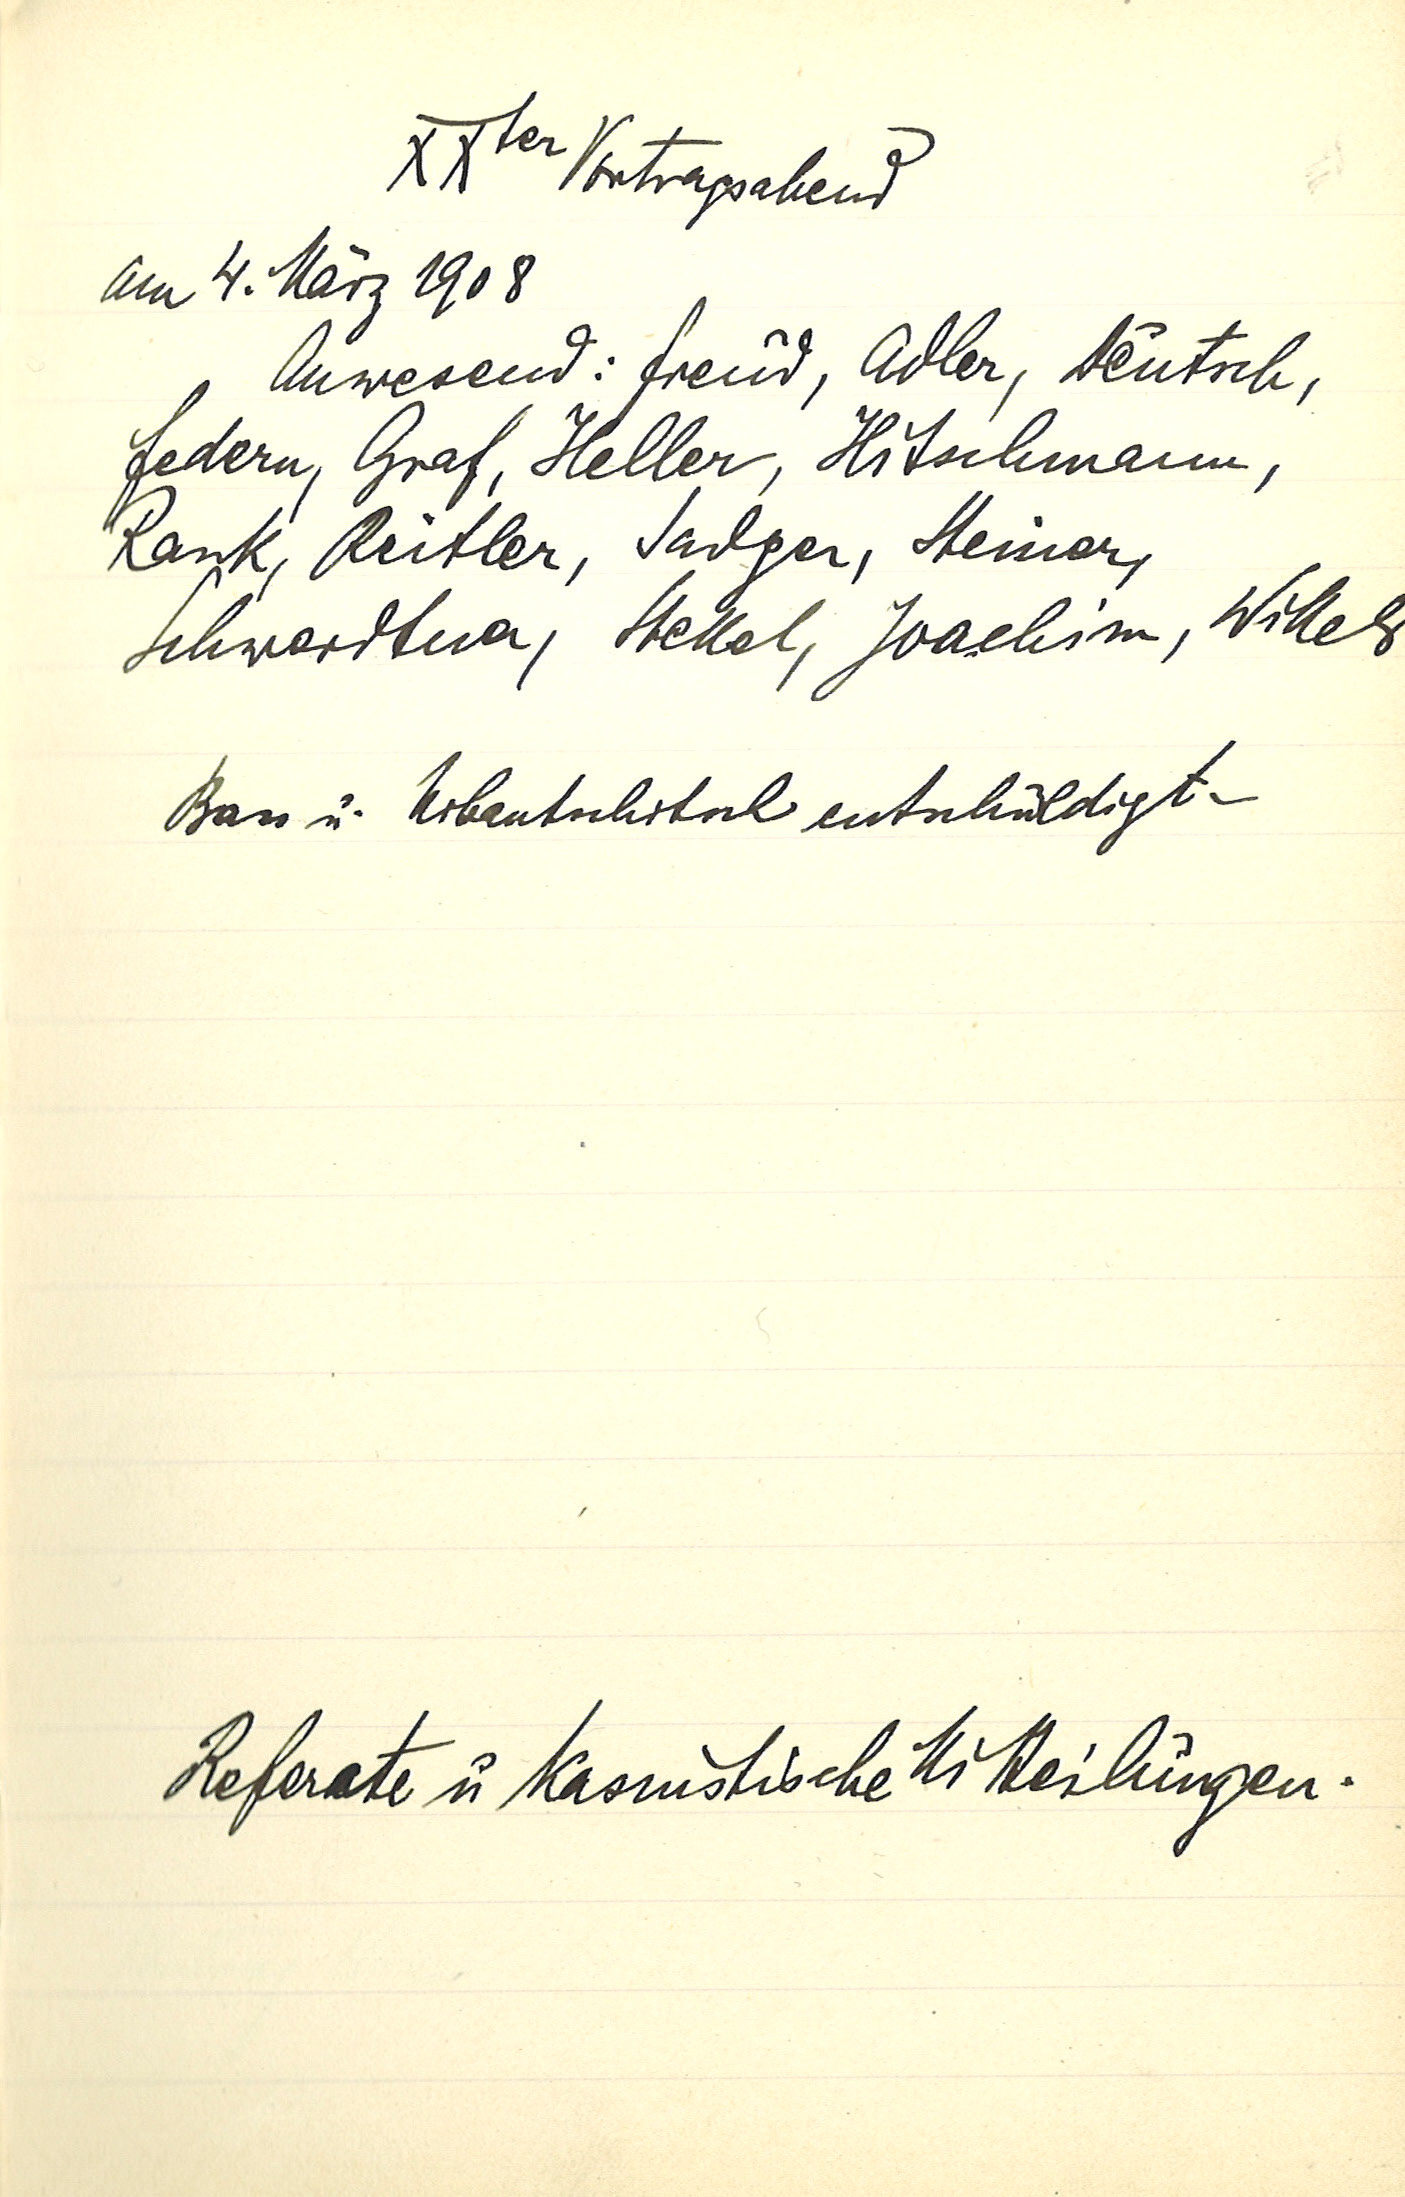 XXter Vortragsabend
am 4. März 1908
Anwesend: Freud, Adler, Deutsch,
Federn, Graf, Heller, Hitschmann,
Rank, Reitler, Sadger, Steiner,
Schwerdtner, Stekel, Joachim, Wittels
Bass u. Urbantschitsch entschuldigt.
Referate u Kasuistische Mitteilungen.